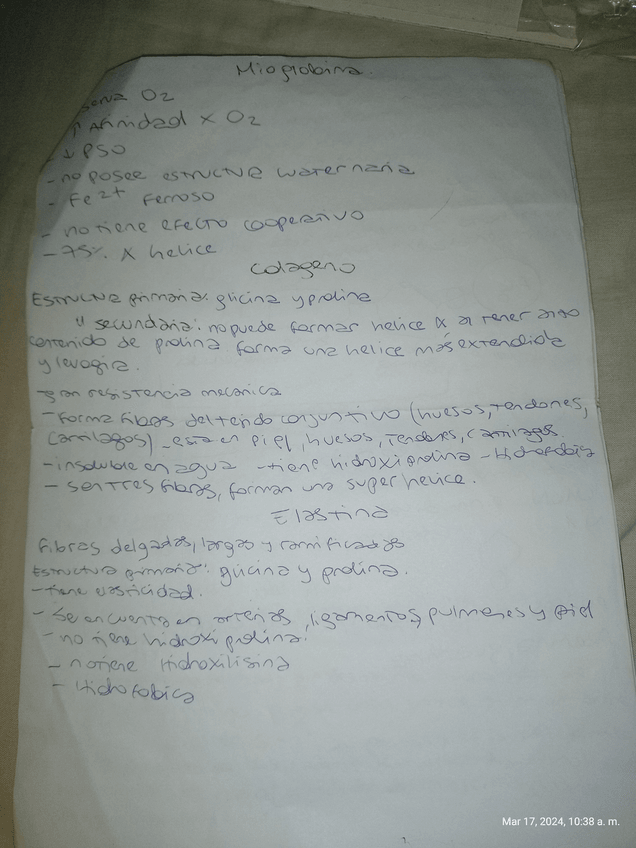 Mioglobina
O2
↑ Afinidad x O2
↓ P50
- no posee estructura cuaternaria
- Fe2+ Ferroso
- no tiene efecto cooperativo
- 75% α helice
Colageno
Estructura primaria: glicina y prolina
" secundaria: no puede formar helice α al tener alto
contenido de prolina forma una helice mas extendida
y levogira.
- gran resistencia mecanica
- Forma fibras del tejido conjuntivo (huesos, tendones,
cartilagos) - esta en piel, huesos, tendones, cartilagos.
- insoluble en agua - tiene hidroxiprolina - Hidrofobia
- sen tres fibras, forman una super helice.
Elastina
fibras delgadas, largas y ramificadas
Estructura primaria: glicina y prolina.
- tiene elasticidad.
- Se encuentra en arterias, ligamentos, pulmones y piel
- no tiene hidroxiprolina.
- no tiene Hidroxilisina
- Hidrofobica
Mar 17, 2024, 10:38 a. m.